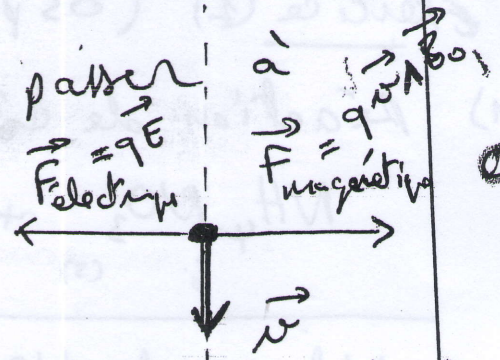 passer à
F⃗électrique = qE⃗
F⃗magnétique = qv⃗∧B⃗o
v⃗